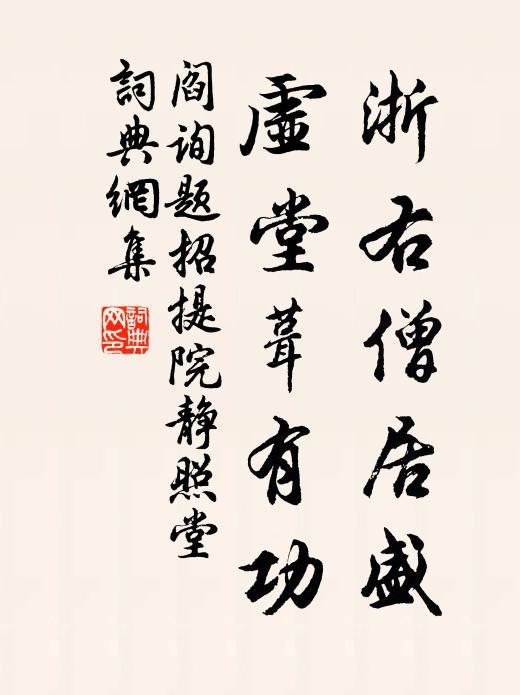 浙右僧居盛
虚堂葺有功
阎询题招提院静照堂
詞典網集
詞典网印